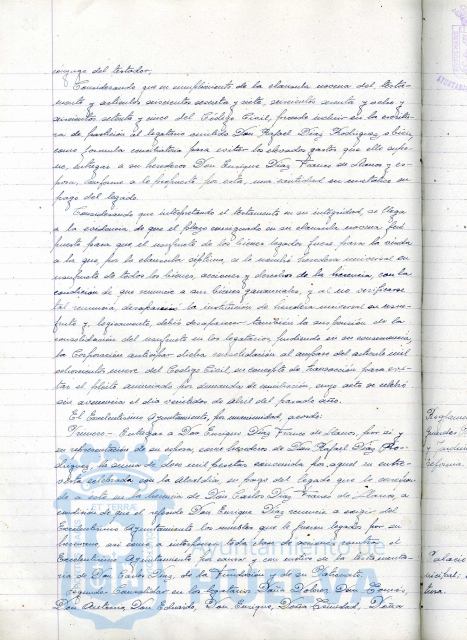 cónyuge del testador.
Considerando que en cumplimiento de la clausula novena del testa-
mento y artículos seiscientos sesenta y siete, seiscientos sesenta y ocho y
setenta y cinco del Código Civil, procede incluir en la escritu-
ra de partición al legatario omitido Don Rafael Díaz Rodríguez o bien,
como fórmula constructiva para evitar los elevados gastos que ello supo-
ne, entregar a su heredero Don Enrique Díaz Franés de Llanos y es-
posa, conforme a lo propuesto por esta, una cantidad en metálico en
pago del legado.
Considerando que interpretando el testamento en su integridad, se llega
a la evidencia de que el plazo consignado en su clausula novena fué
puesto para que el usufructo de los bienes legados fuese para la viuda
a la que, por la clausula séptima, se le nombró heredera universal en
usufructo de todos los bienes, acciones y derechos de la herencia, con la
condición de que renuncie a sus bienes gananciales, y al no verificarse
tal renuncia, desapareció la institución de heredera universal en usu-
fructo y, logicamente, debió desaparecer también la suspensión de la
consolidación del usufructo en los legatarios, pudiendo en su consecuencia,
la Corporación anticipar dicha consolidación al amparo del artículo mil
ochocientos nueve del Código Civil, en concepto de transacción para evi-
tar el pleito anunciado por demanda de conciliación, cuyo acto se celebró
sin avenencia el día veintidos de abril del pasado año.
El Excelentísimo Ayuntamiento, por unanimidad, acordó:
Primero.- Entregar a Don Enrique Díaz Franés de Llanos, por sí y
en representación de su señora, como herederos de Don Rafael Díaz Ro-
dríguez, la suma de doce mil pesetas convenida por aquel en entre-
vista celebrada con la Alcaldía, en pago del legado que le
a este en la herencia de Don Carlos Díaz Franés de Llanos, a
condición de que el referido Don Enrique Díaz renuncie a exigir del
Excelentísimo Ayuntamiento los muebles que le fueron legados por su
hermano, así como a interponer toda clase de acciones contra el
Excelentísimo Ayuntamiento por causa y con motivo de la testamenta-
ría de Don Carlos Díaz, de la Fundación y de su Patronato.
Segundo.- Consolidar en los legatarios Doña Dolores, Don Tomás,
Don Antonio, Don Eduardo, Don Enrique, Doña Trinidad, Doña
Reglamento
Guardas
y Jardines
reforma
Palacio
nicipal:
Ayuntamiento de